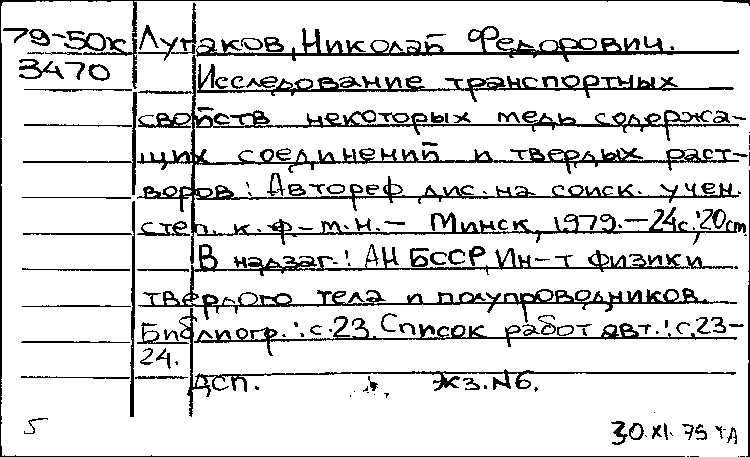 79-50к Лугаков, Николай Федорович.
3470 Исследование транспортных
свойств некоторых медь содержа-
щих соединений и твердых раст-
воров: Автореф дис. на соиск. учен.
степ. к. ф-м.н. - Минск, 1979. - 24с.; 20cm
В надзаг.: АН БССР, Ин-т физики
твердого тела и полупроводников.
Библиогр.: с. 23. Список работ авт.: с. 23-
24.
ДСП. Экз. N6.
5 30.XI.79